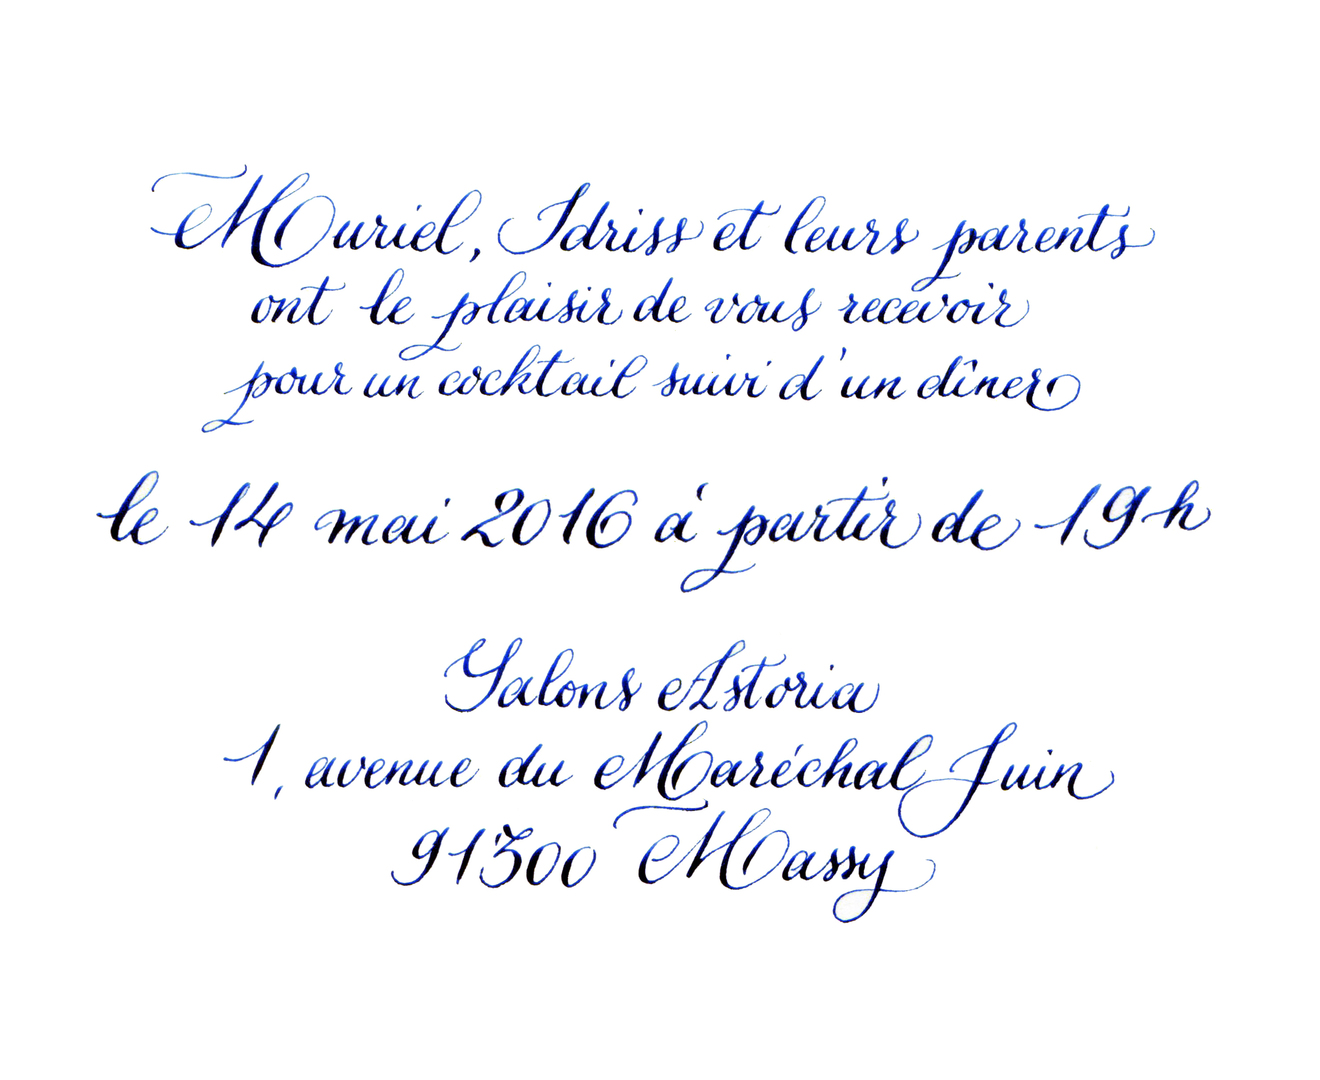 Muriel, Idriss et leurs parents
ont le plaisir de vous recevoir
pour un cocktail suivi d'un dîner
le 14 mai 2016 à partir de 19h
Salons Astoria
1, avenue du Maréchal Juin
91300 Massy